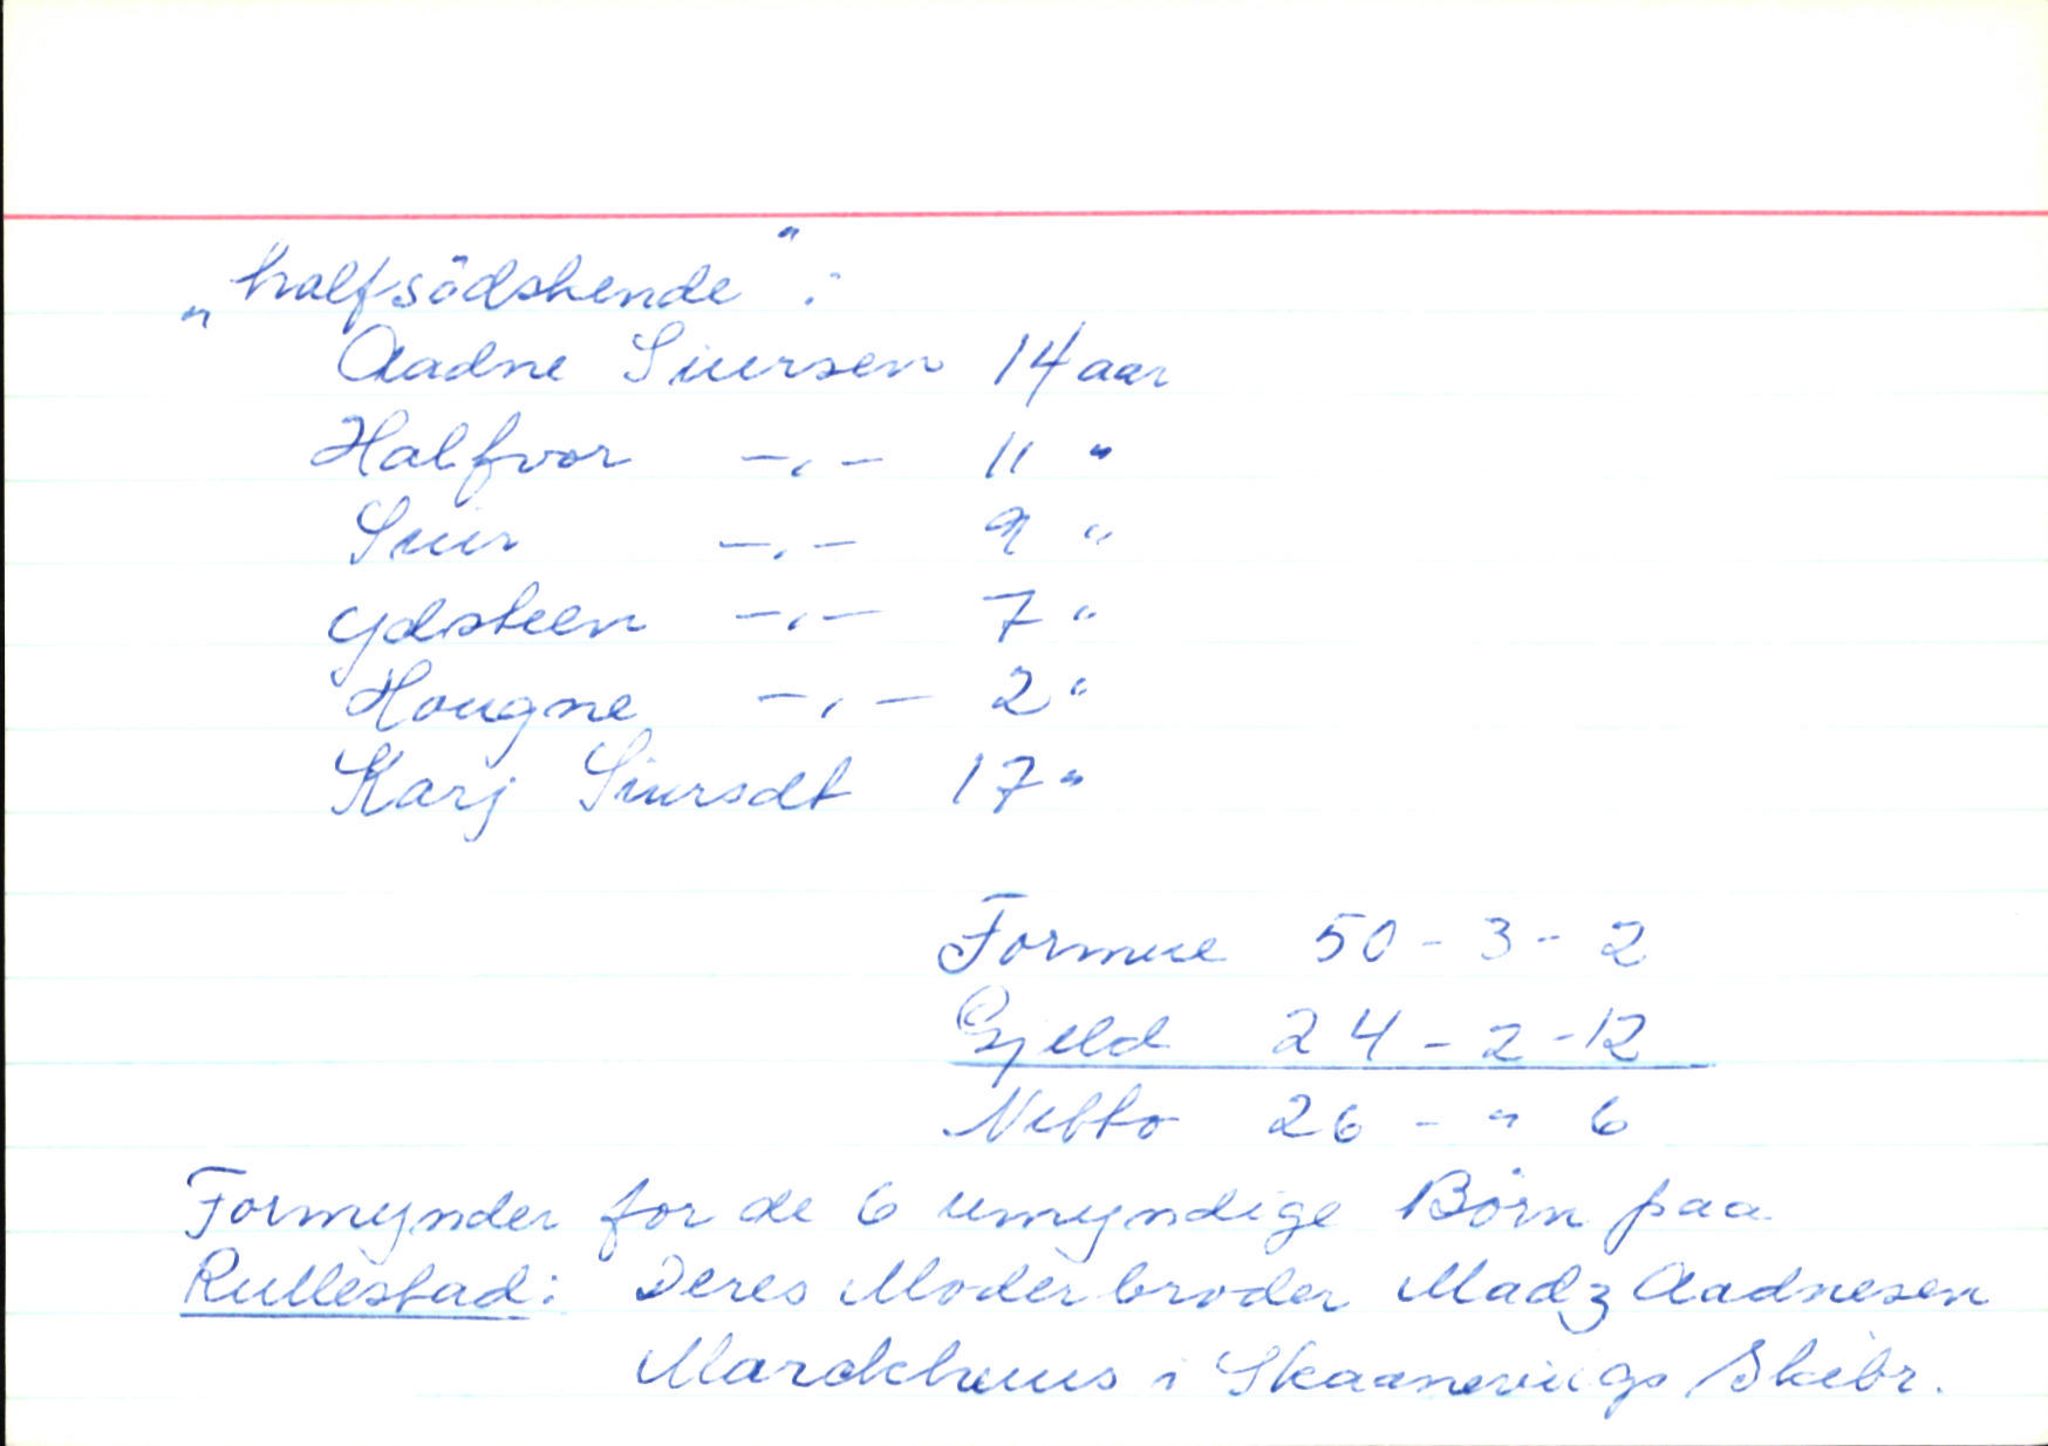 „halfsödskende":
Aadne Siursen 14 aar
Halfvor -,- 11 "
Siur -,- 9 "
Ydsteen -,- 7 "
Hougne -,- 2 "
Karj Siursdt 17 "
Formue 50 - 3 - 2
Gjeld 24 - 2 - 12
Netto 26 - " 6
Formynder for de 6 umyndige Börn paa
Rullestad: Deres Moderbroder Madz Aadnesen
Marckhuus i Skaaneviigs Skibr.